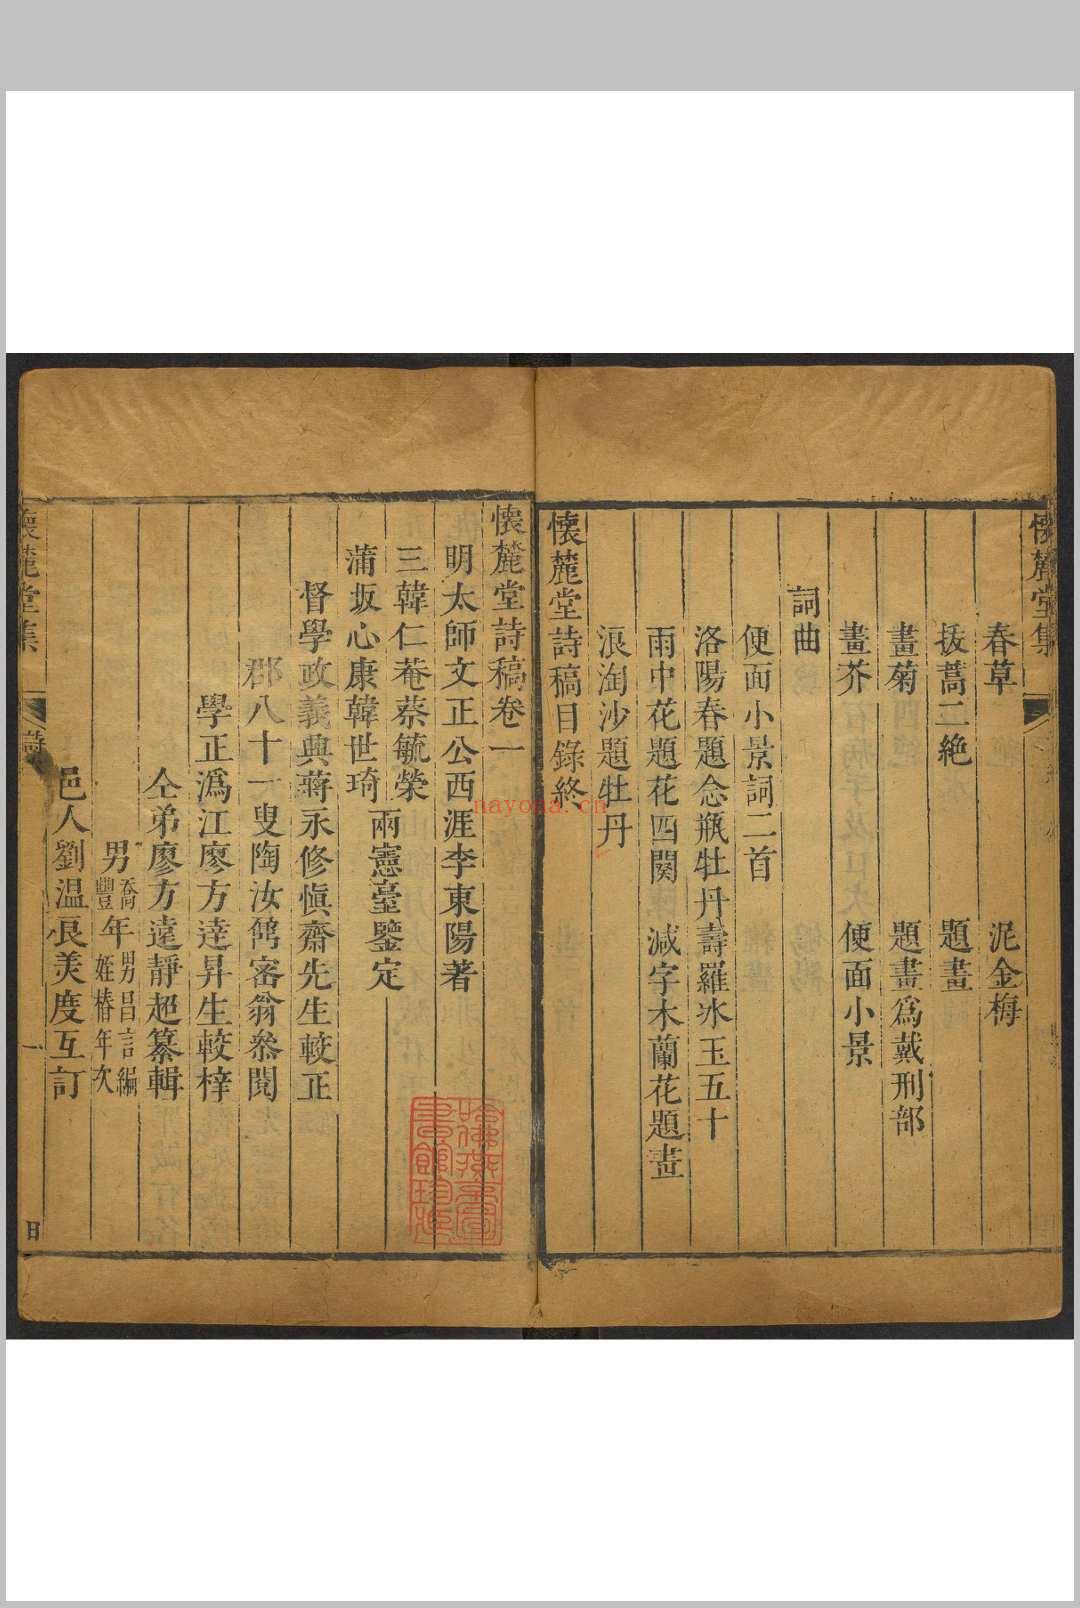 懷麓堂集
春草　泥金梅
拔蒿二絶　題畫
畫菊　題畫爲戴刑部
畫芥　便面小景
詞曲
便面小景詞二首
洛陽春題念瓶牡丹壽羅氷玉五十
雨中花題花四闋　減字木蘭花題畫
浪淘沙題牡丹
懷麓堂詩稿目錄終
懷麓堂詩稿卷一
明太師文正公西涯李東陽著
三韓仁菴蔡毓榮
蒲坂心康韓世琦
兩憲臺鑒定
督學政義興蔣永修愼齋先生較正
郡八十一叟陶汝鴒密翁叅閱
學正潙江廖方逹昇生較梓
仝弟廖方遠靜超纂輯
男喬豐年男昌言編
姪椿年次
邑人劉温良羙度互訂
懷麓堂集
詩
一
nayona.cn